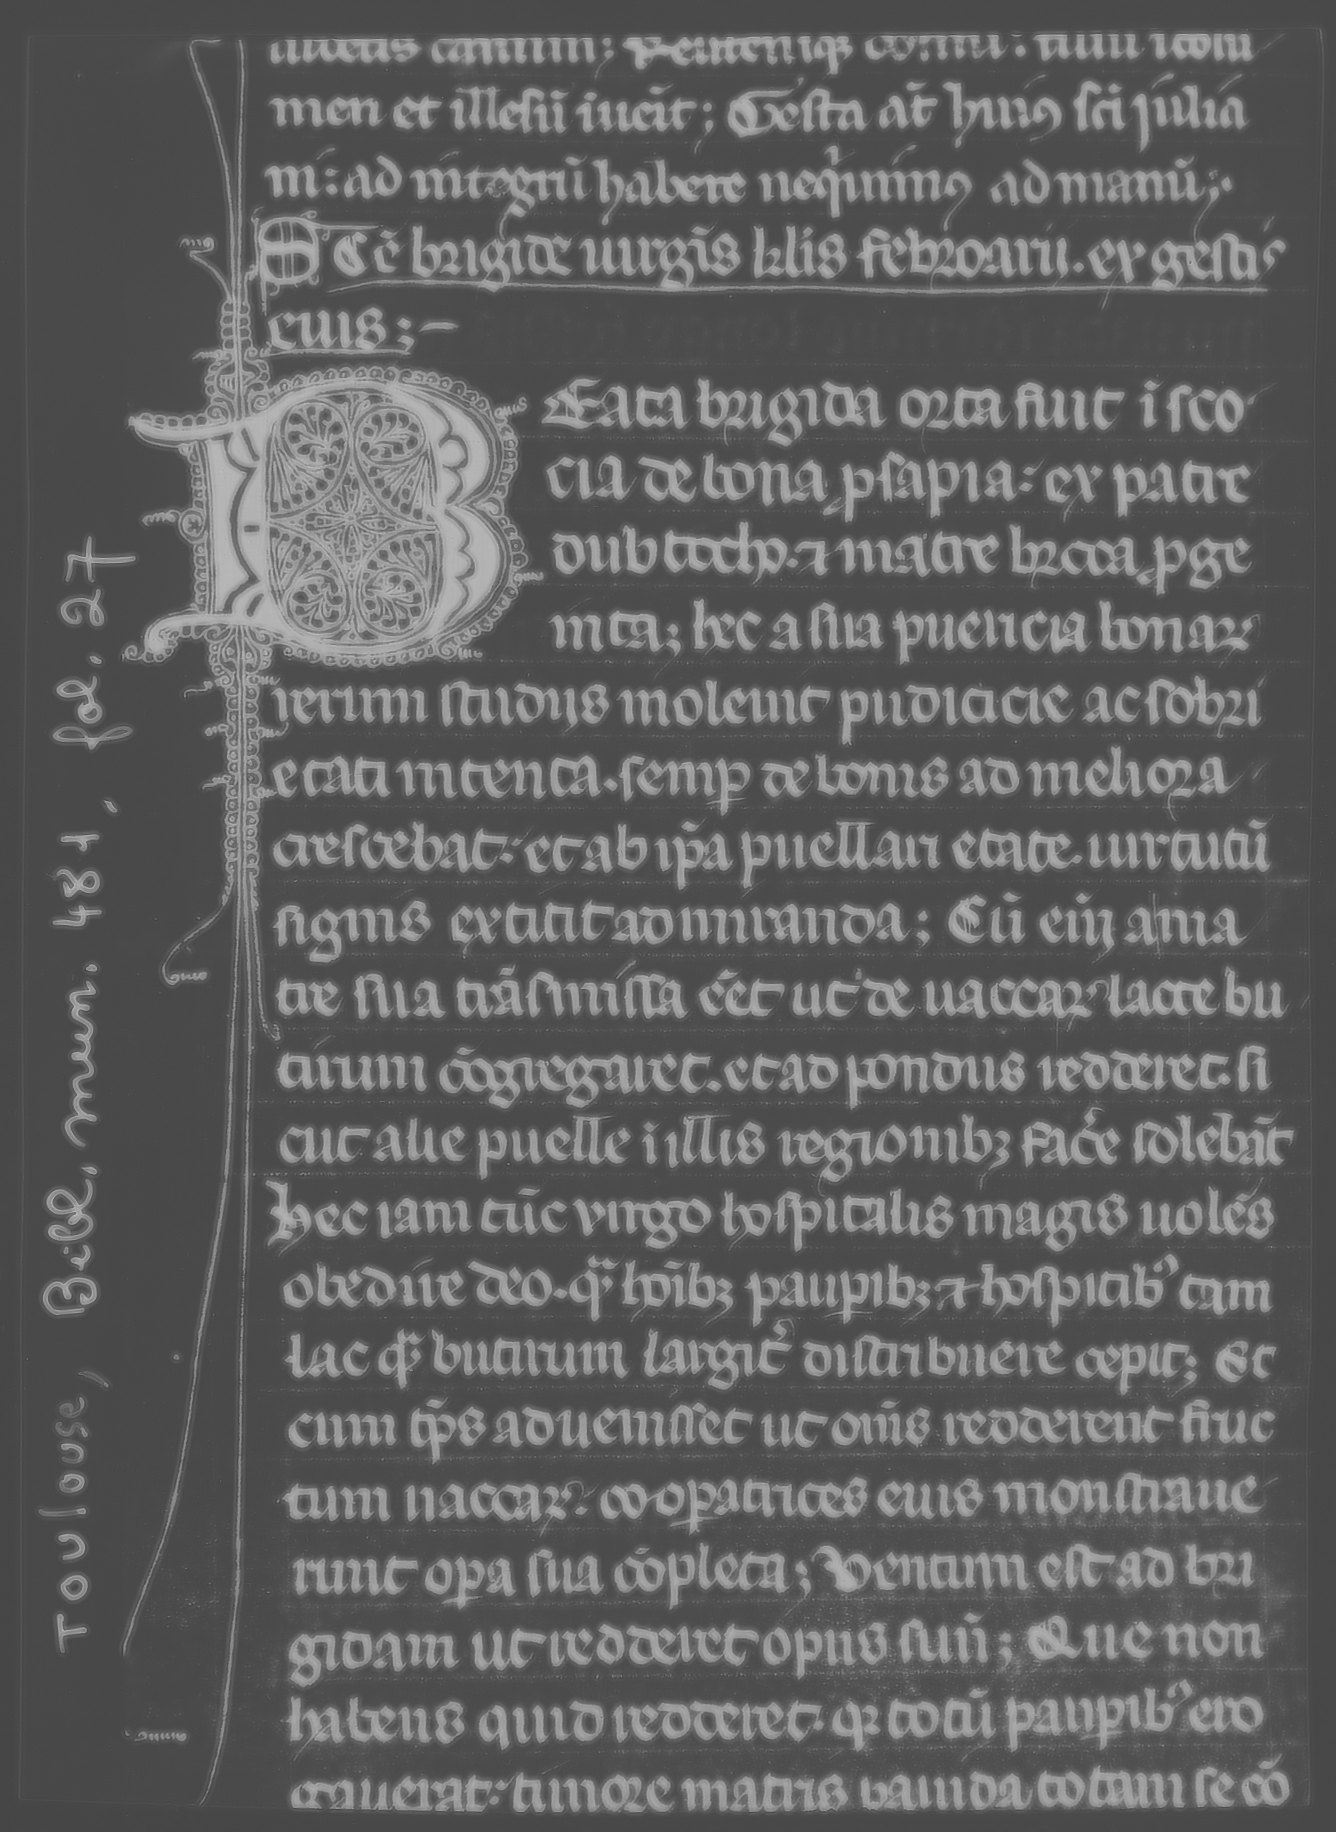 men et illesū īuēit; Gesta aūt huiꝰ sc̄i julia
ni: ad integrū habere neqͥuimꝰ ad manū;
SCē brigide uirgīs kl̄is febroarii. ex gestis
eius;
BEata brigida orta fuit ī sco
cia de bona ꝓsapia: ex patre
dubtocho. ⁊ matre brocca ꝓge
nita; hec a sua puericia bonaꝝ
rerum studiis inoleuit pudicicie ac sobri
etati intenta. semꝑ de bonis ad meliora
crescebat: et ab ip̄a puellari etate. uirtutū
signis extitit admiranda; Cū eīj a ma
tre sua trāsmissa ēēt ut de uaccaꝝ lacte bu
tirum cōgregaret. et ad pondus redderet. si
cut alie puelle ī illis regionibꝫ facͤe solebāt
hec iam tūc virgo hospitalis magis uolēs
obedire deo. qͣꝫ hoībꝫ pauꝑibꝫ ⁊ hospitibꝰ tam
lac qͣꝫ butirum largit͛ distribuere cepit; Et
cum tp̄s aduenisset ut om̄s redderent fruc
tum uaccaꝝ. cooꝑatrices eius monstraue
runt oꝑa sua cōpleta; Ventum est ad bri
gidam ut redderet opus suū; Que non
habens quid redderet. qꝛ totū pauꝑibꝰ ero
gauerat: timore matris pauida totam se cō
Toulouse, Bibl. mun. 481, fol. 27